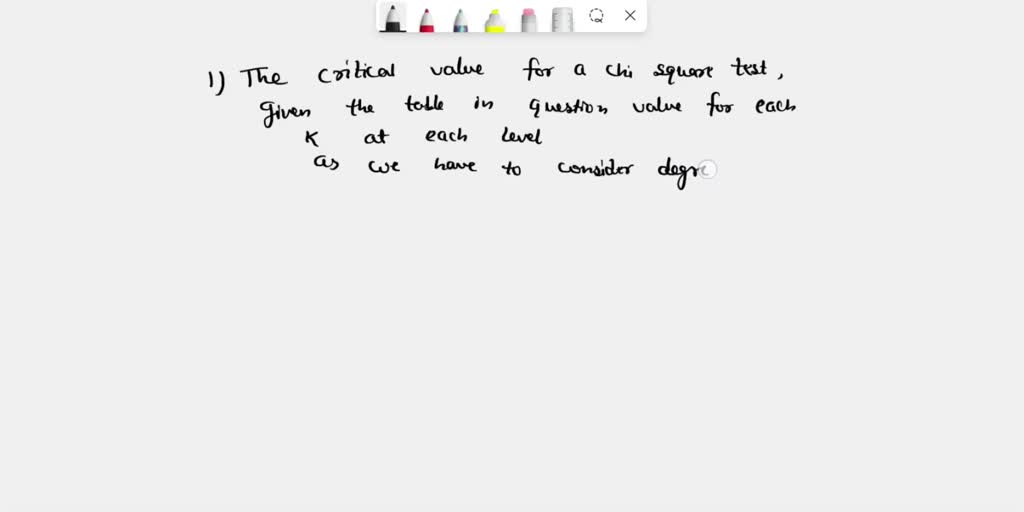 1) The critical value for a chi square test,
given the table in question value for each
K at each level
as we have to consider degre